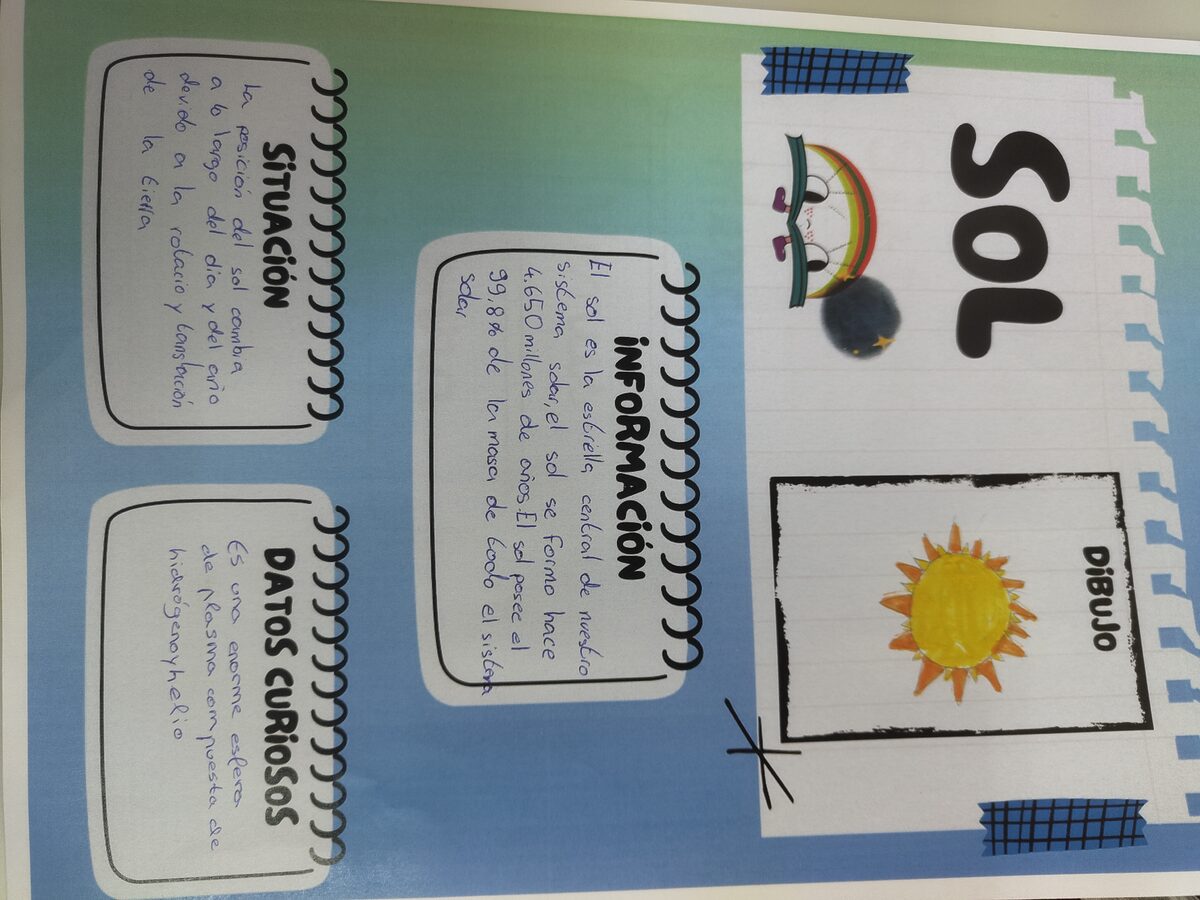 SOL
DIBUJO
INFORMACIÓN
El sol es la estrella central de nuestro
sistema solar, el sol se formo hace
4.650 millones de años. El sol posee el
99,8% de la masa de todo el sistema
solar
SITUACIÓN
La posición del sol cambia
a lo largo del día y del año
devido a la rotacio y translación
de la tierra
DATOS CURIOSOS
Es una enorme esfera
de plasma compuesta de
hidrógeno y helio